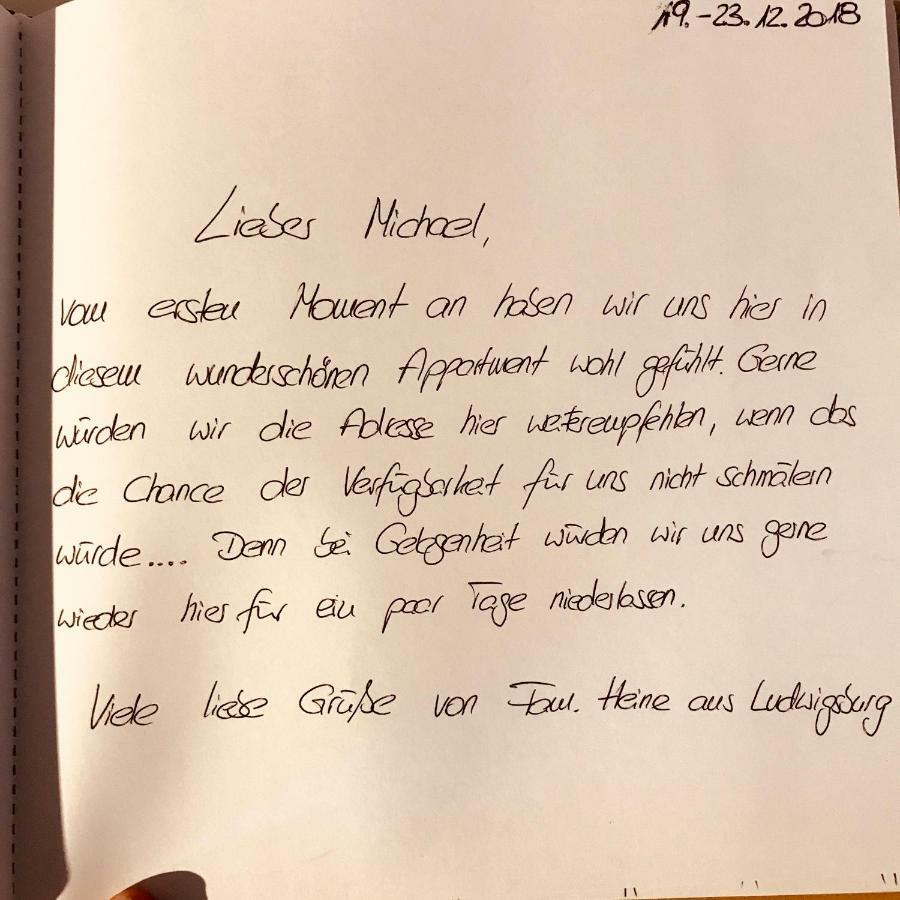 19.-23.12.2018
Lieber Michael,
vom ersten Moment an haben wir uns hier in
diesem wunderschönen Appartment wohl gefühlt. Gerne
würden wir die Adresse hier weiterempfehlen, wenn das
die Chance der Verfügbarkeit für uns nicht schmälern
würde.... Denn bei Gelegenheit würden wir uns gerne
wieder hier für ein paar Tage niederlassen.
Viele liebe Grüße von Fam. Heine aus Ludwigsburg